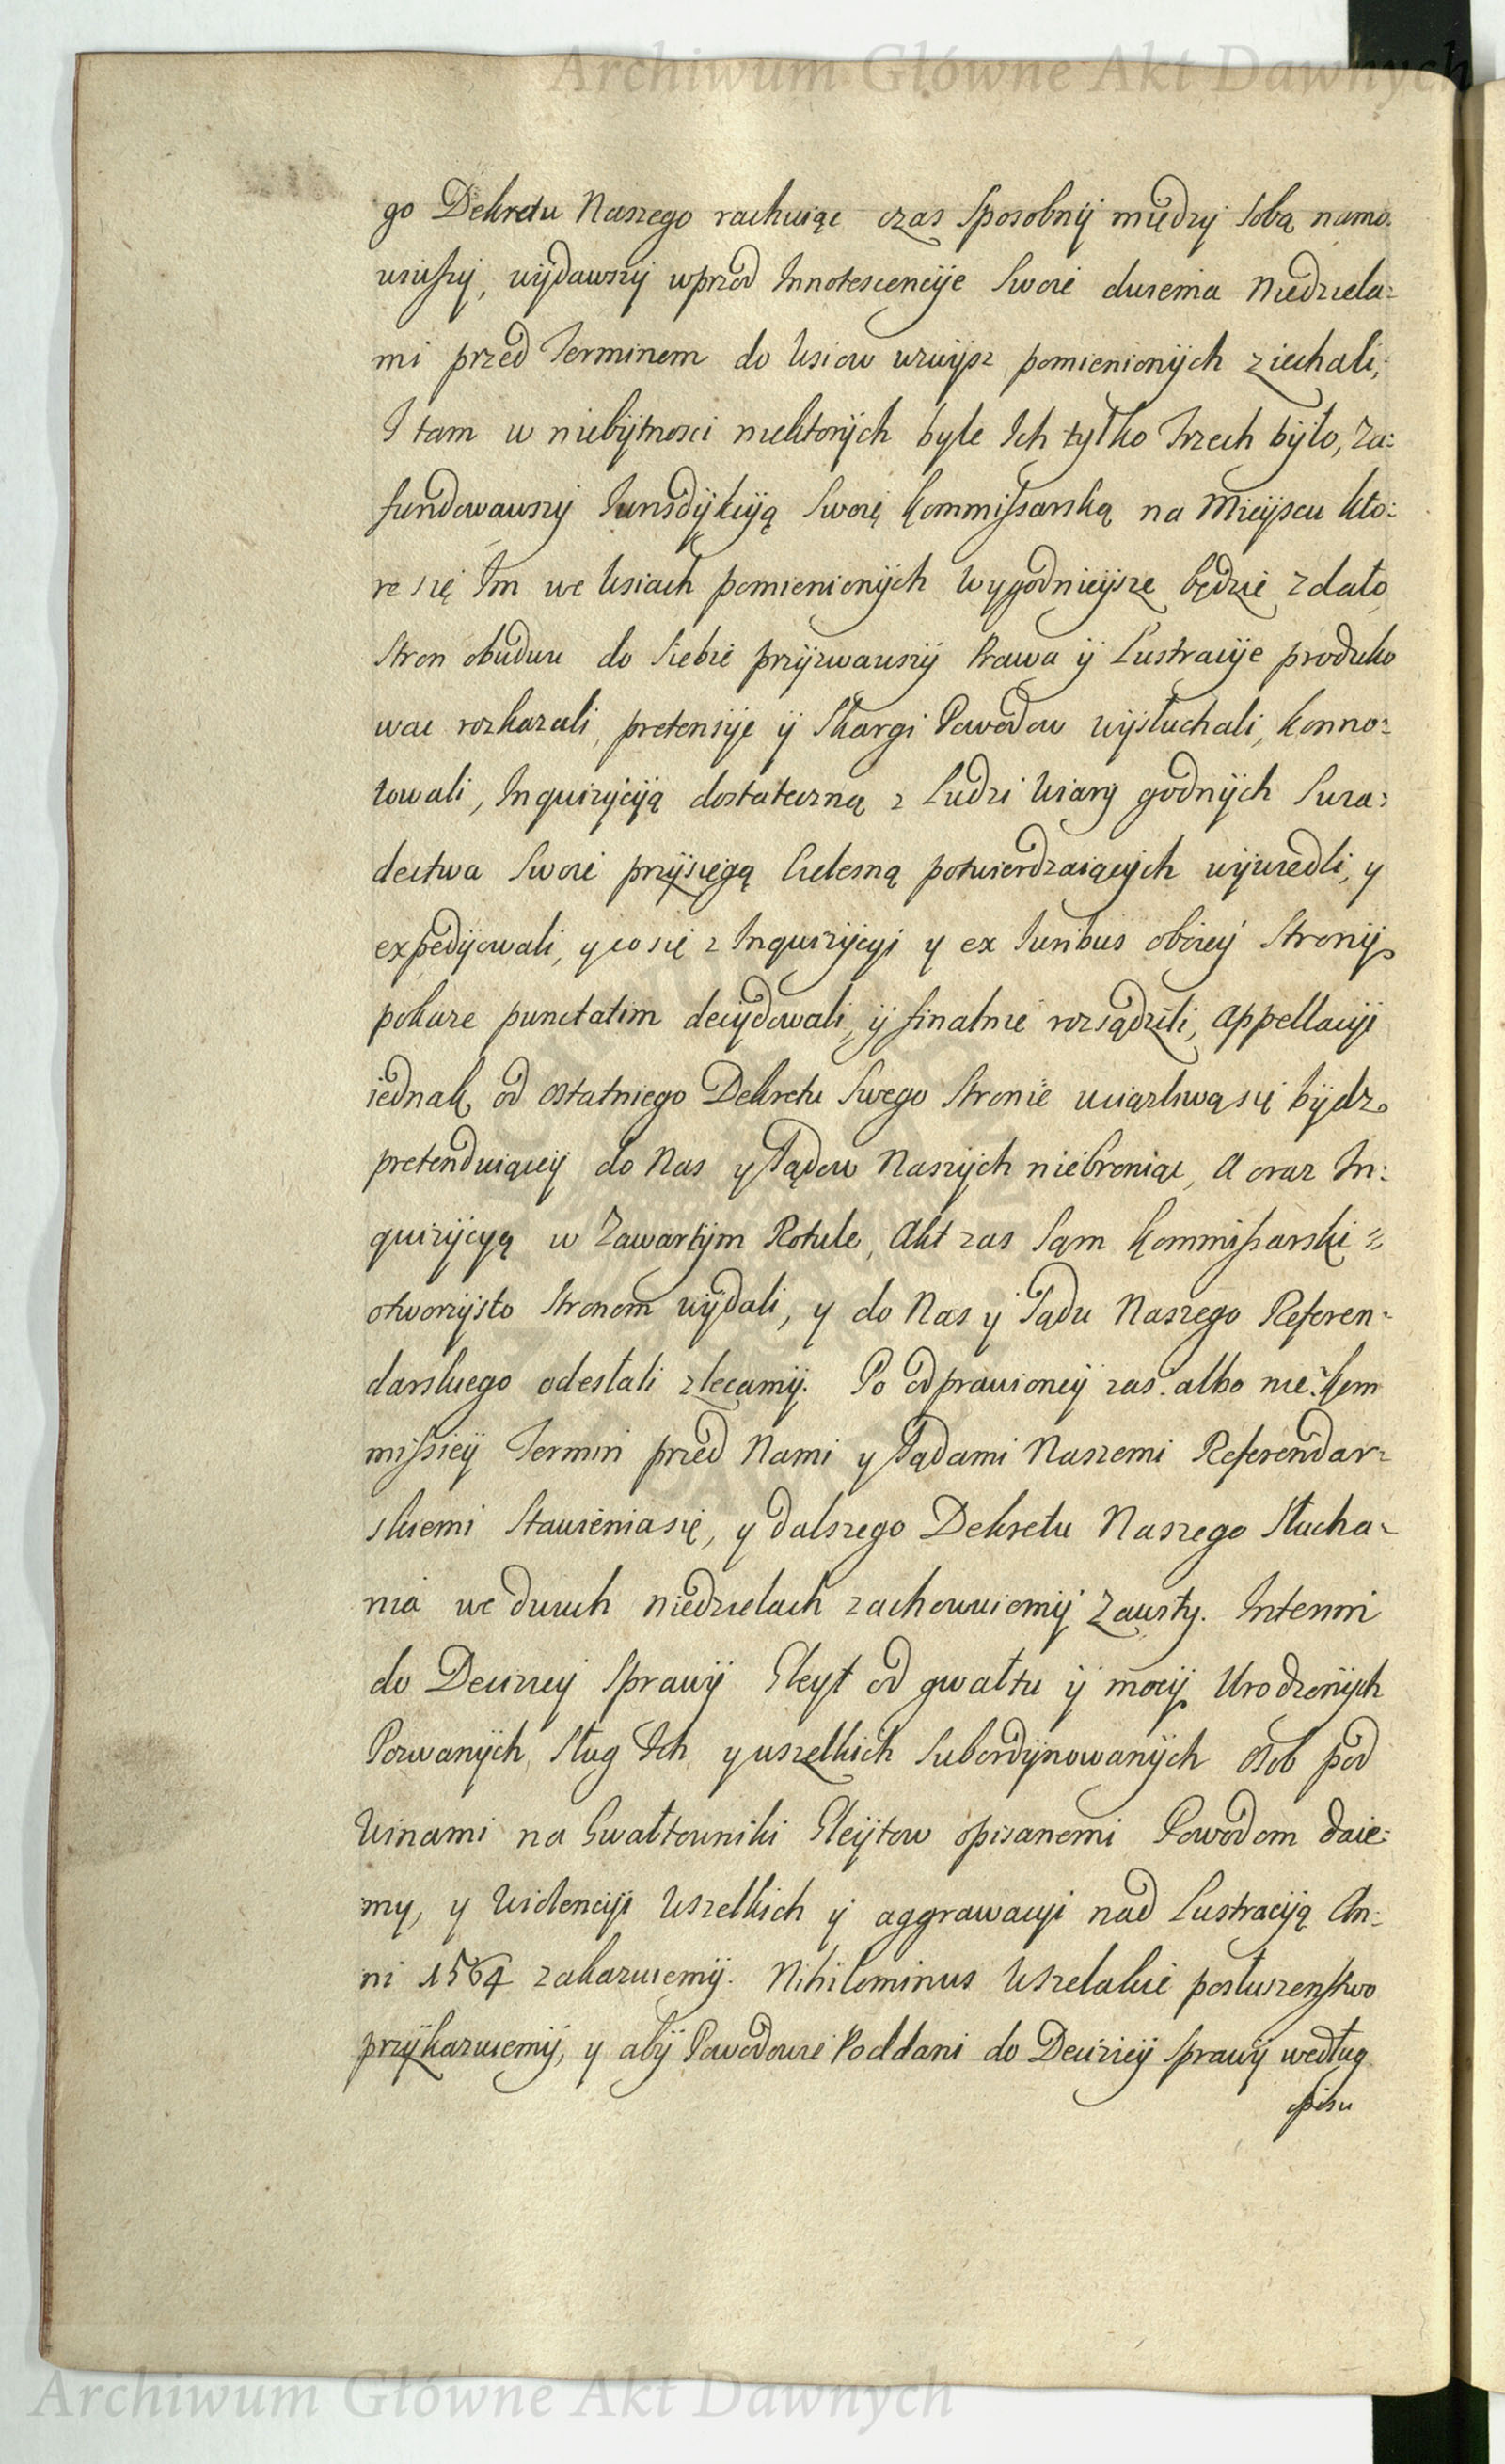 Archiwum Główne Akt Dawnych
go Dekretu Naszego rachuiąc czas sposobny między sobą namo:
wiwszÿ, wÿdawszÿ wprzod Innotescencÿe Swoie dwiema Niedziela:
mi przed Terminem do Wsiow wzwÿsz pomienionÿch ziechali,
I tam w niebÿtnosci niektorÿch byle Ich tylko Trzech bÿło, Za:
fundowawszÿ Jurisdÿkcÿą Swoię Kommissarską na Mieÿscu kto:
re się Im we Wsiach pomienionÿch wygodnieÿsze będzie zdało
Stron obudwu do Siebie przÿzwawszÿ Prawa ÿ Lustracÿe produko
wac rozkazali, pretensÿe ÿ Skargi Powodow wÿsłuchali, konno:
towali, Inquizÿcÿą dostateczną z Ludzi Wiary godnÿch Swia:
dectwa Swoie przÿsięgą Cielesną potwierdzaiącÿch wÿwiedli, y
expedÿowali, y co się z Inquizÿcyi y ex Iuribus oboieÿ Stronÿ
pokaze punctatim decÿdowali, ÿ finalnie rozsądzili, Appellacÿi
iednak od ostatniego Dekretu Swego Stronie uciązliwą się bÿdz
pretenduiąceÿ do Nas y Sądow Naszÿch niebroniąc, A oraz In:
quizÿcyą w Zawartÿm Rotule, Akt zas Sąm Kommissarski =
otworzÿsto Stronom wÿdali, y do Nas ÿ Sądu Naszego Referen:
darskiego odesłali zlecamÿ. Po odprawioneÿ zas albo nie Kom
missieÿ Termin przed Nami y Sądami Naszemi Referendar:
skiemi Stawienia się, y dalszego Dekretu Naszego Słucha:
nia we dwuch niedzielach zachowuiemÿ Zawitÿ. Interim
do Decizieÿ Sprawÿ Gleyt od gwałtu ÿ mocÿ Urodzonÿch
Pozwanÿch, Sług Ich, y wszelkich Subordÿnowanÿch Osob pod
Winami na Gwałtowniki Gleÿtow opisanemi Powodom daie:
my, y Wiolencÿi Wszelkich ÿ aggrawacyi nad Lustracÿą An:
ni 1564 zakazuiemÿ. Nihilominus Wszelakie posłuszenstwo
przÿkazuiemÿ, y abÿ Powodowie Poddani do Decizieÿ Sprawÿ według
opisu
Archiwum Główne Akt Dawnych